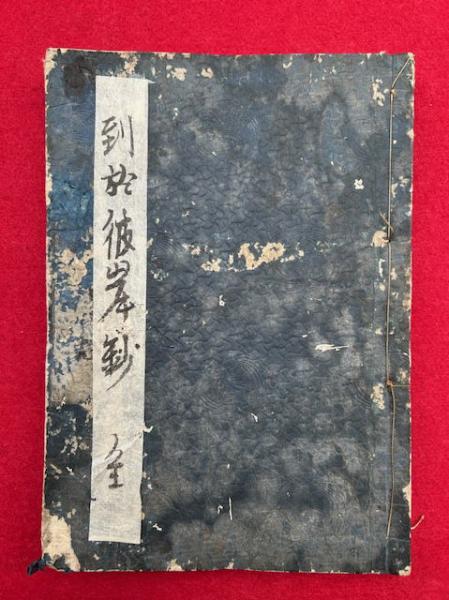 到於彼岸鈔 全